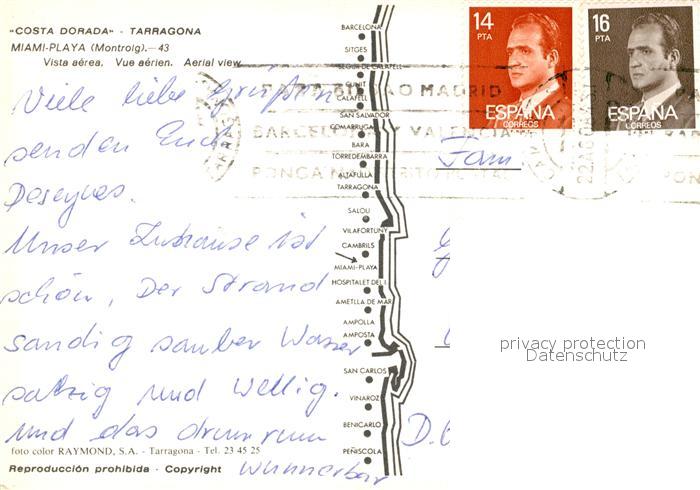 "COSTA DORADA" - TARRAGONA
MIAMI-PLAYA (Montroig).—43
Vista aérea. Vue aérien. Aerial view.
Viele liebe Grüße
senden Euch
Unser Zuhause ist
schön, Der Strand
sandig sauber Wasser
salzig und wellig.
und das drum rum
wunnerbar
foto color RAYMOND, S.A. - Tarragona - Tel. 23 45 25
Reproducción prohibida - Copyright
BARCELONA
SITGES
SEGUR DE CALAFELL
CUNIT
CALAFELL
SAN SALVADOR
COMARRUGA
BARA
TORREDEMBARRA
ALTAFULLA
TARRAGONA
SALOU
VILAFORTUNY
CAMBRILS
MIAMI-PLAYA
HOSPITALET DEL I.
AMETLLA DE MAR
AMPOLLA
AMPOSTA
SAN CARLOS
VINAROZ
BENICARLO
PEÑISCOLA
14
PTA
ESPAÑA
CORREOS
16
PTA
ESPAÑA
CORREOS
BILBAO MADRID
BARCELONA Y VALENCIA
PONGA DISTRITO POSTAL
Fam
privacy protection
Datenschutz